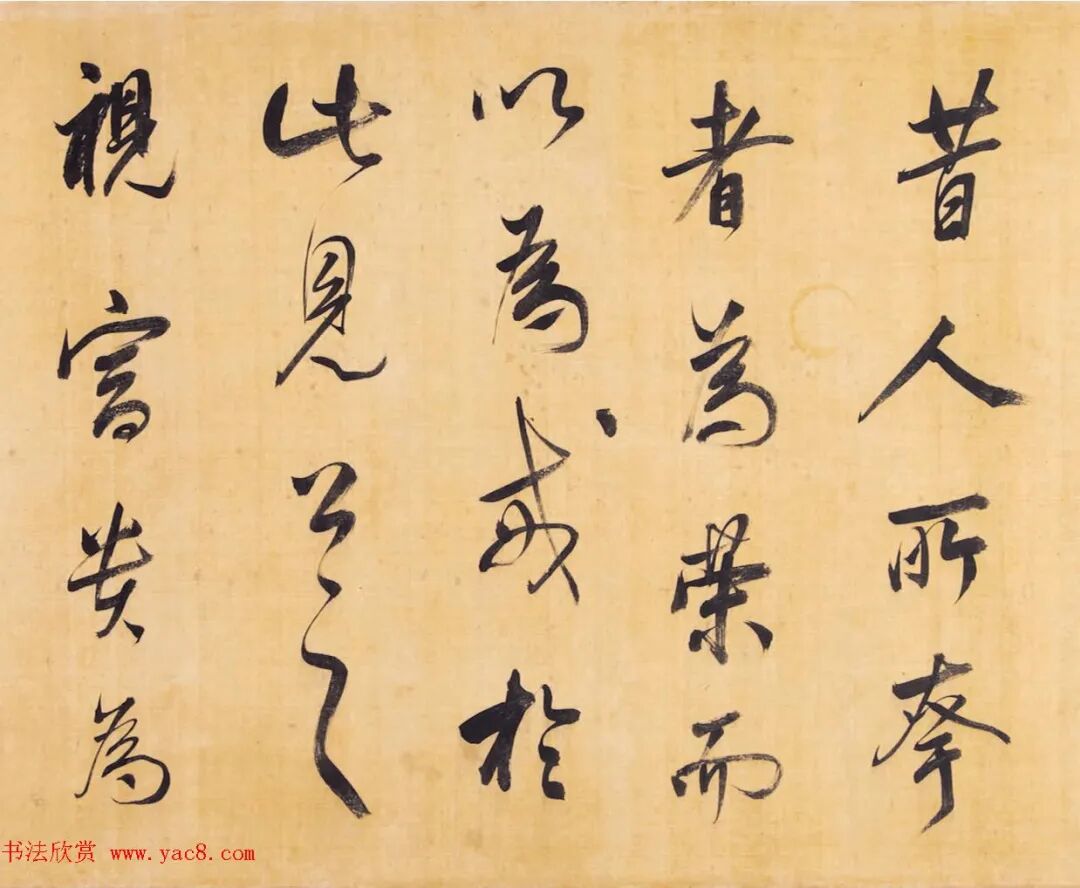 昔人所夸
者為榮而
以為戒於
此見公之
視富貴為
书法欣赏 www.yac8.com